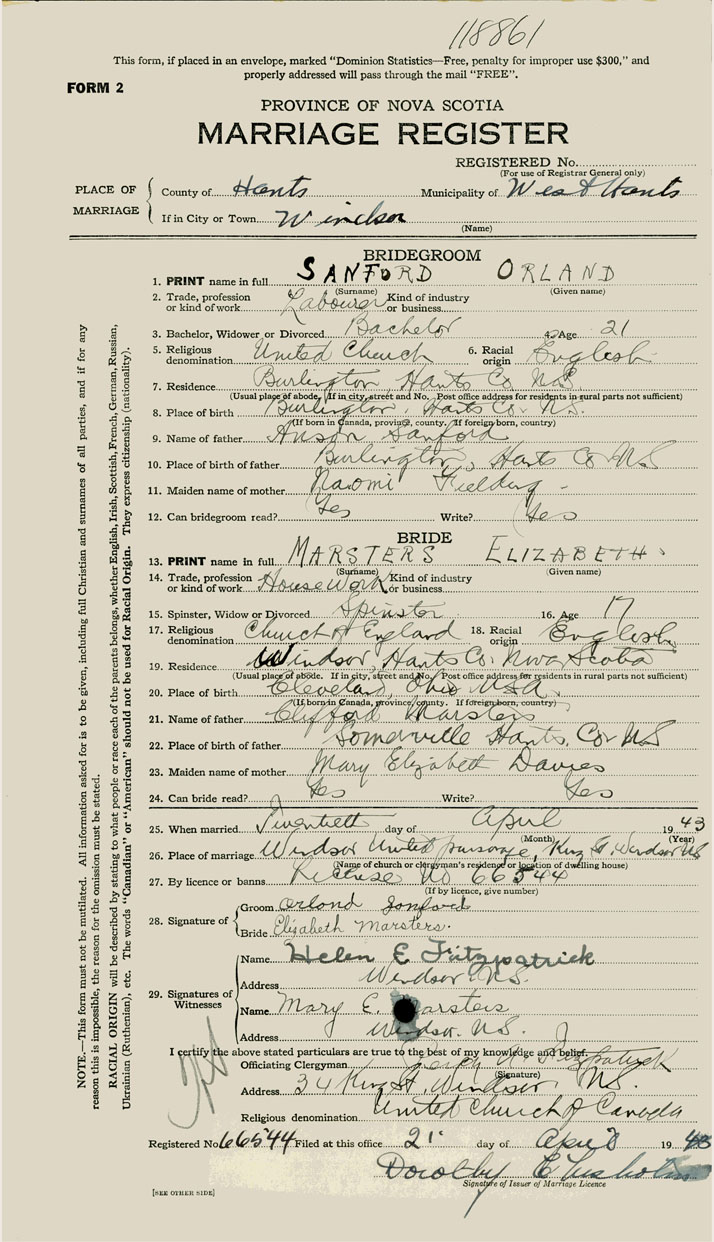 118861
This form, if placed in an envelope, marked "Dominion Statistics—Free, penalty for improper use $300," and
properly addressed will pass through the mail "FREE".
FORM 2
PROVINCE OF NOVA SCOTIA
MARRIAGE REGISTER
REGISTERED No.
(For use of Registrar General only)
PLACE OF MARRIAGE
County of Hants Municipality of West Hants
If in City or Town Windsor
(Name)
BRIDEGROOM
1. PRINT name in full SANFORD ORLAND
(Surname) (Given name)
2. Trade, profession or kind of work Labourer Kind of industry or business
3. Bachelor, Widower or Divorced Bachelor 4. Age 21
5. Religious denomination United Church 6. Racial origin English
7. Residence Burlington, Hants Co N.S.
(Usual place of abode. If in city, street and No. Post office address for residents in rural parts not sufficient)
8. Place of birth Burlington, Hants Co. N.S.
(If born in Canada, province, county. If foreign born, country)
9. Name of father Anson Sanford
10. Place of birth of father Burlington, Hants Co NS
11. Maiden name of mother Naomi Fielding
12. Can bridegroom read? Yes Write? Yes
BRIDE
13. PRINT name in full MARSTERS ELIZABETH
(Surname) (Given name)
14. Trade, profession or kind of work Housework Kind of industry or business
15. Spinster, Widow or Divorced Spinster 16. Age 17
17. Religious denomination Church of England 18. Racial origin English
19. Residence Windsor, Hants Co. Nova Scotia
(Usual place of abode. If in city, street and No. Post office address for residents in rural parts not sufficient)
20. Place of birth Cleveland, Ohio USA.
(If born in Canada, province, county. If foreign born, country)
21. Name of father Clifford Marsters
22. Place of birth of father Somerville Hants. Co NS
23. Maiden name of mother Mary Elizabeth Davies
24. Can bride read? Yes Write? Yes
25. When married Twentieth day of April 1943
(Month) (Year)
26. Place of marriage Windsor United parsonage, King St. Windsor NS
(Name of church or clergyman's residence or location of dwelling house)
27. By licence or banns License No 66544
(If by licence, give number)
28. Signature of
Groom Orland Sanford
Bride Elizabeth Marsters.
29. Signatures of Witnesses
Name Helen E Fitzpatrick
Address Windsor. N.S.
Name Mary E. Marsters
Address Windsor. N.S.
I certify the above stated particulars are true to the best of my knowledge and belief.
Officiating Clergyman Fitzpatrick
(Signature)
Address 34 King St, Windsor, N.S.
Religious denomination United Church of Canada
Registered No 66544 Filed at this office 21 day of April 1943
Dorothy Chisholm
Signature of Issuer of Marriage Licence
[SEE OTHER SIDE]
NOTE.—This form must not be mutilated. All information asked for is to be given, including full Christian and surnames of all parties, and if for any
reason this is impossible, the reason for the omission must be stated.
RACIAL ORIGIN will be described by stating to what people or race each of the parents belongs, whether English, Irish, Scottish, French, German, Russian,
Ukrainian (Ruthenian), etc. The words "Canadian" or "American" should not be used for Racial Origin. They express citizenship (nationality).